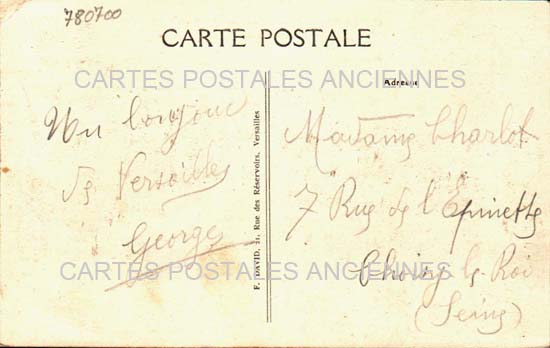 780700
CARTE POSTALE
CARTES POSTALES ANCIENNES
Adresse
Un bonjour
de Versailles
George
F. DAVID, 21, Rue des Réservoirs, Versailles
Madame Charlot
7 Rue de l'Epinette
Choisy le Roi
(Seine)
CARTES POSTALES ANCIENNES